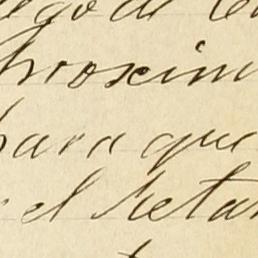 go de
proxim
para que
el reta